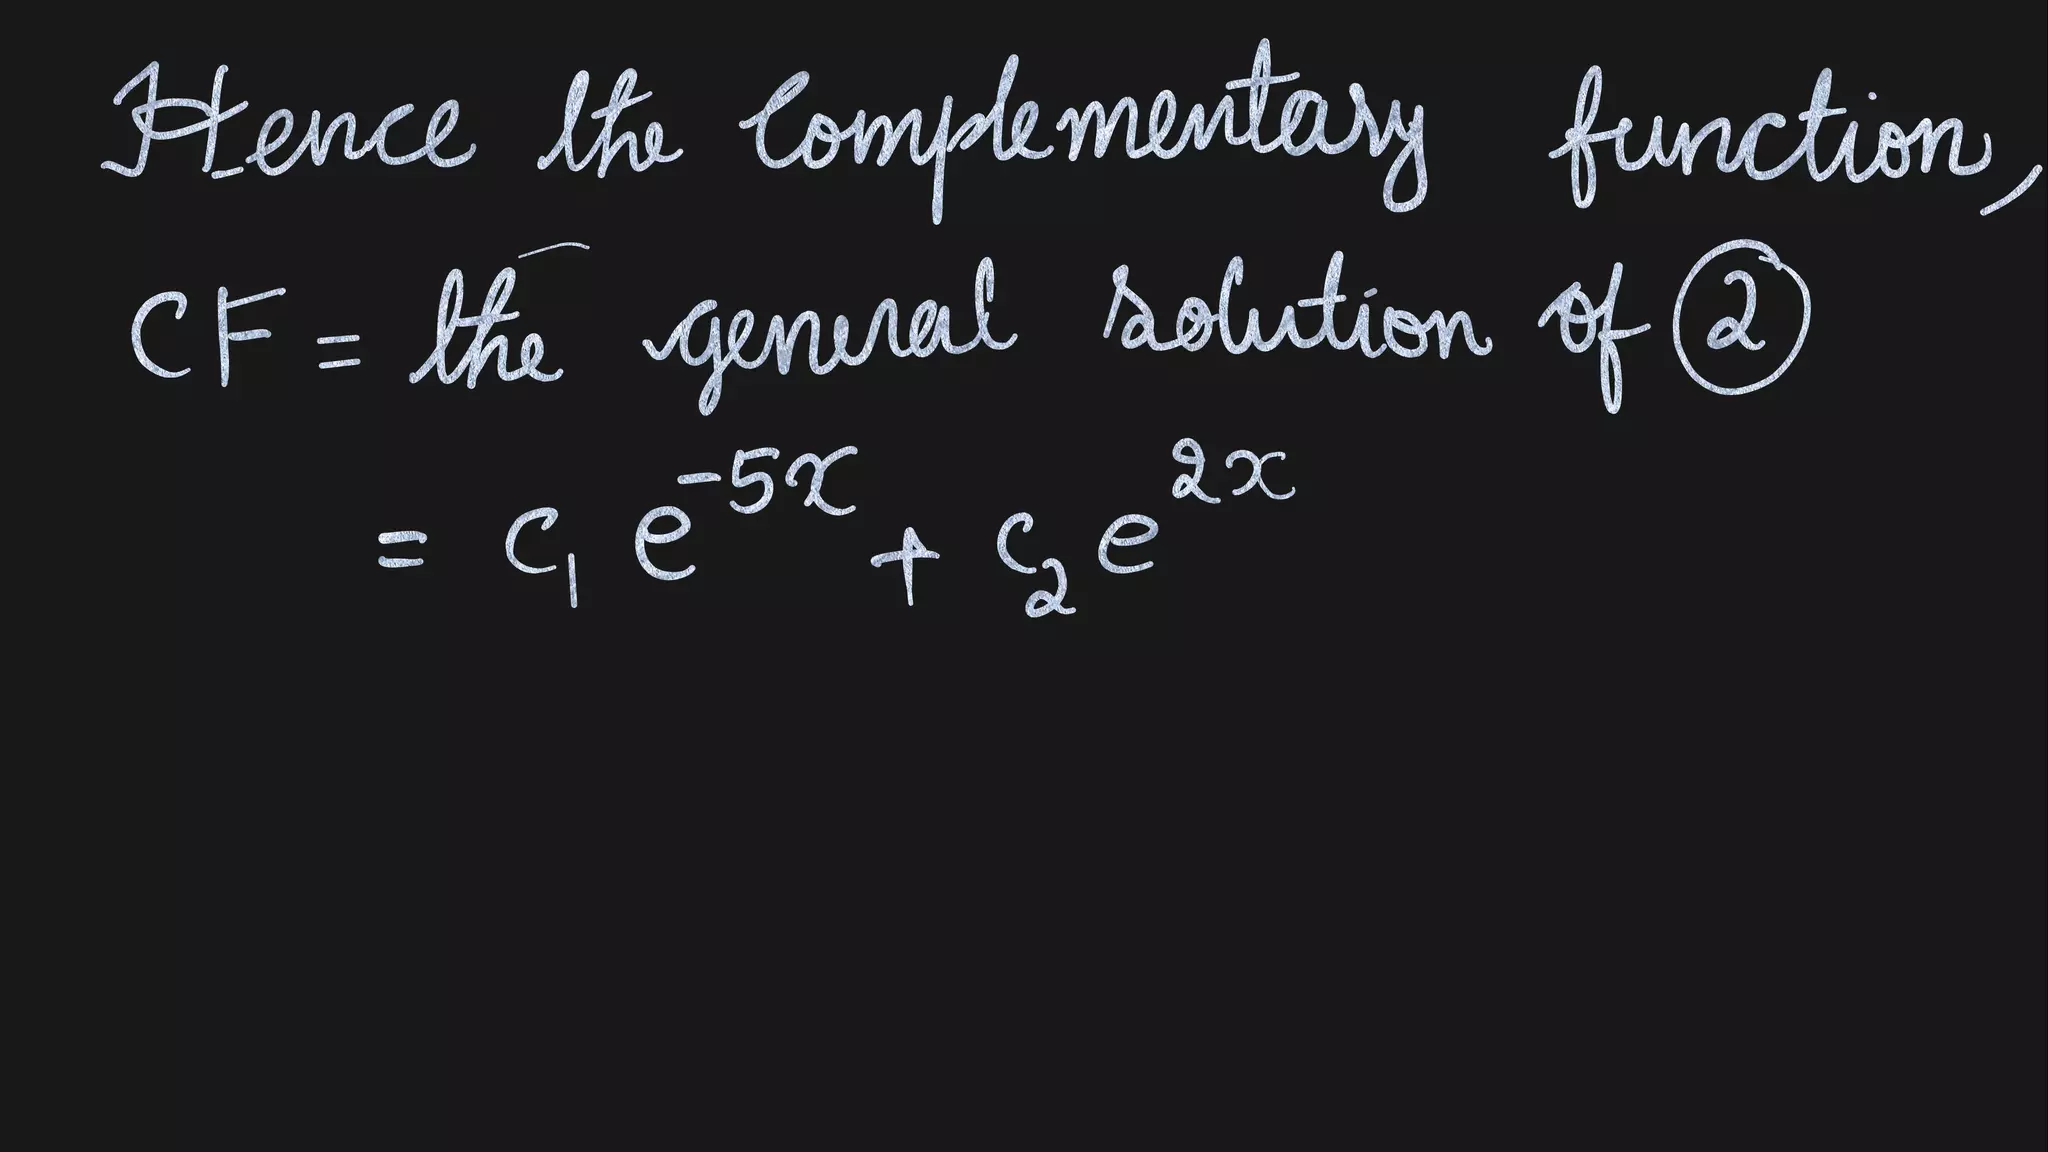 Hence the Complementary function,
CF = the general solution of ②
= c₁ e^{-5x} + c₂ e^{2x}